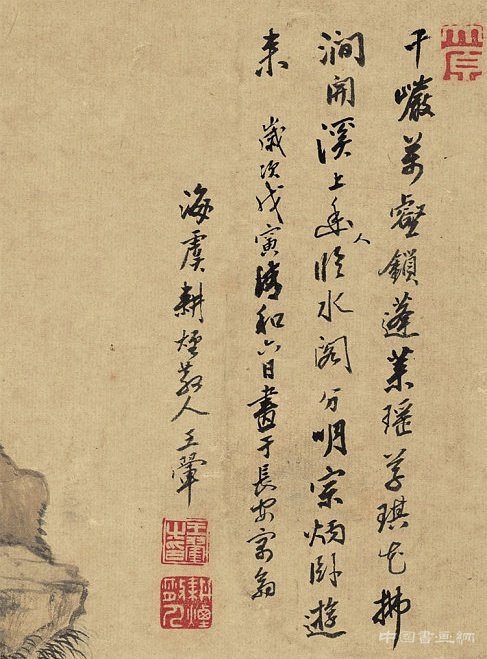 千巖萬壑鎖蓬萊瑤草琪花拂
澗開溪上幽人臨水閣分明宗炳臥遊
來 歲次戊寅清和六日畫于長安寓
海虞耕煙散人王翬
王翬之印
中国書画網